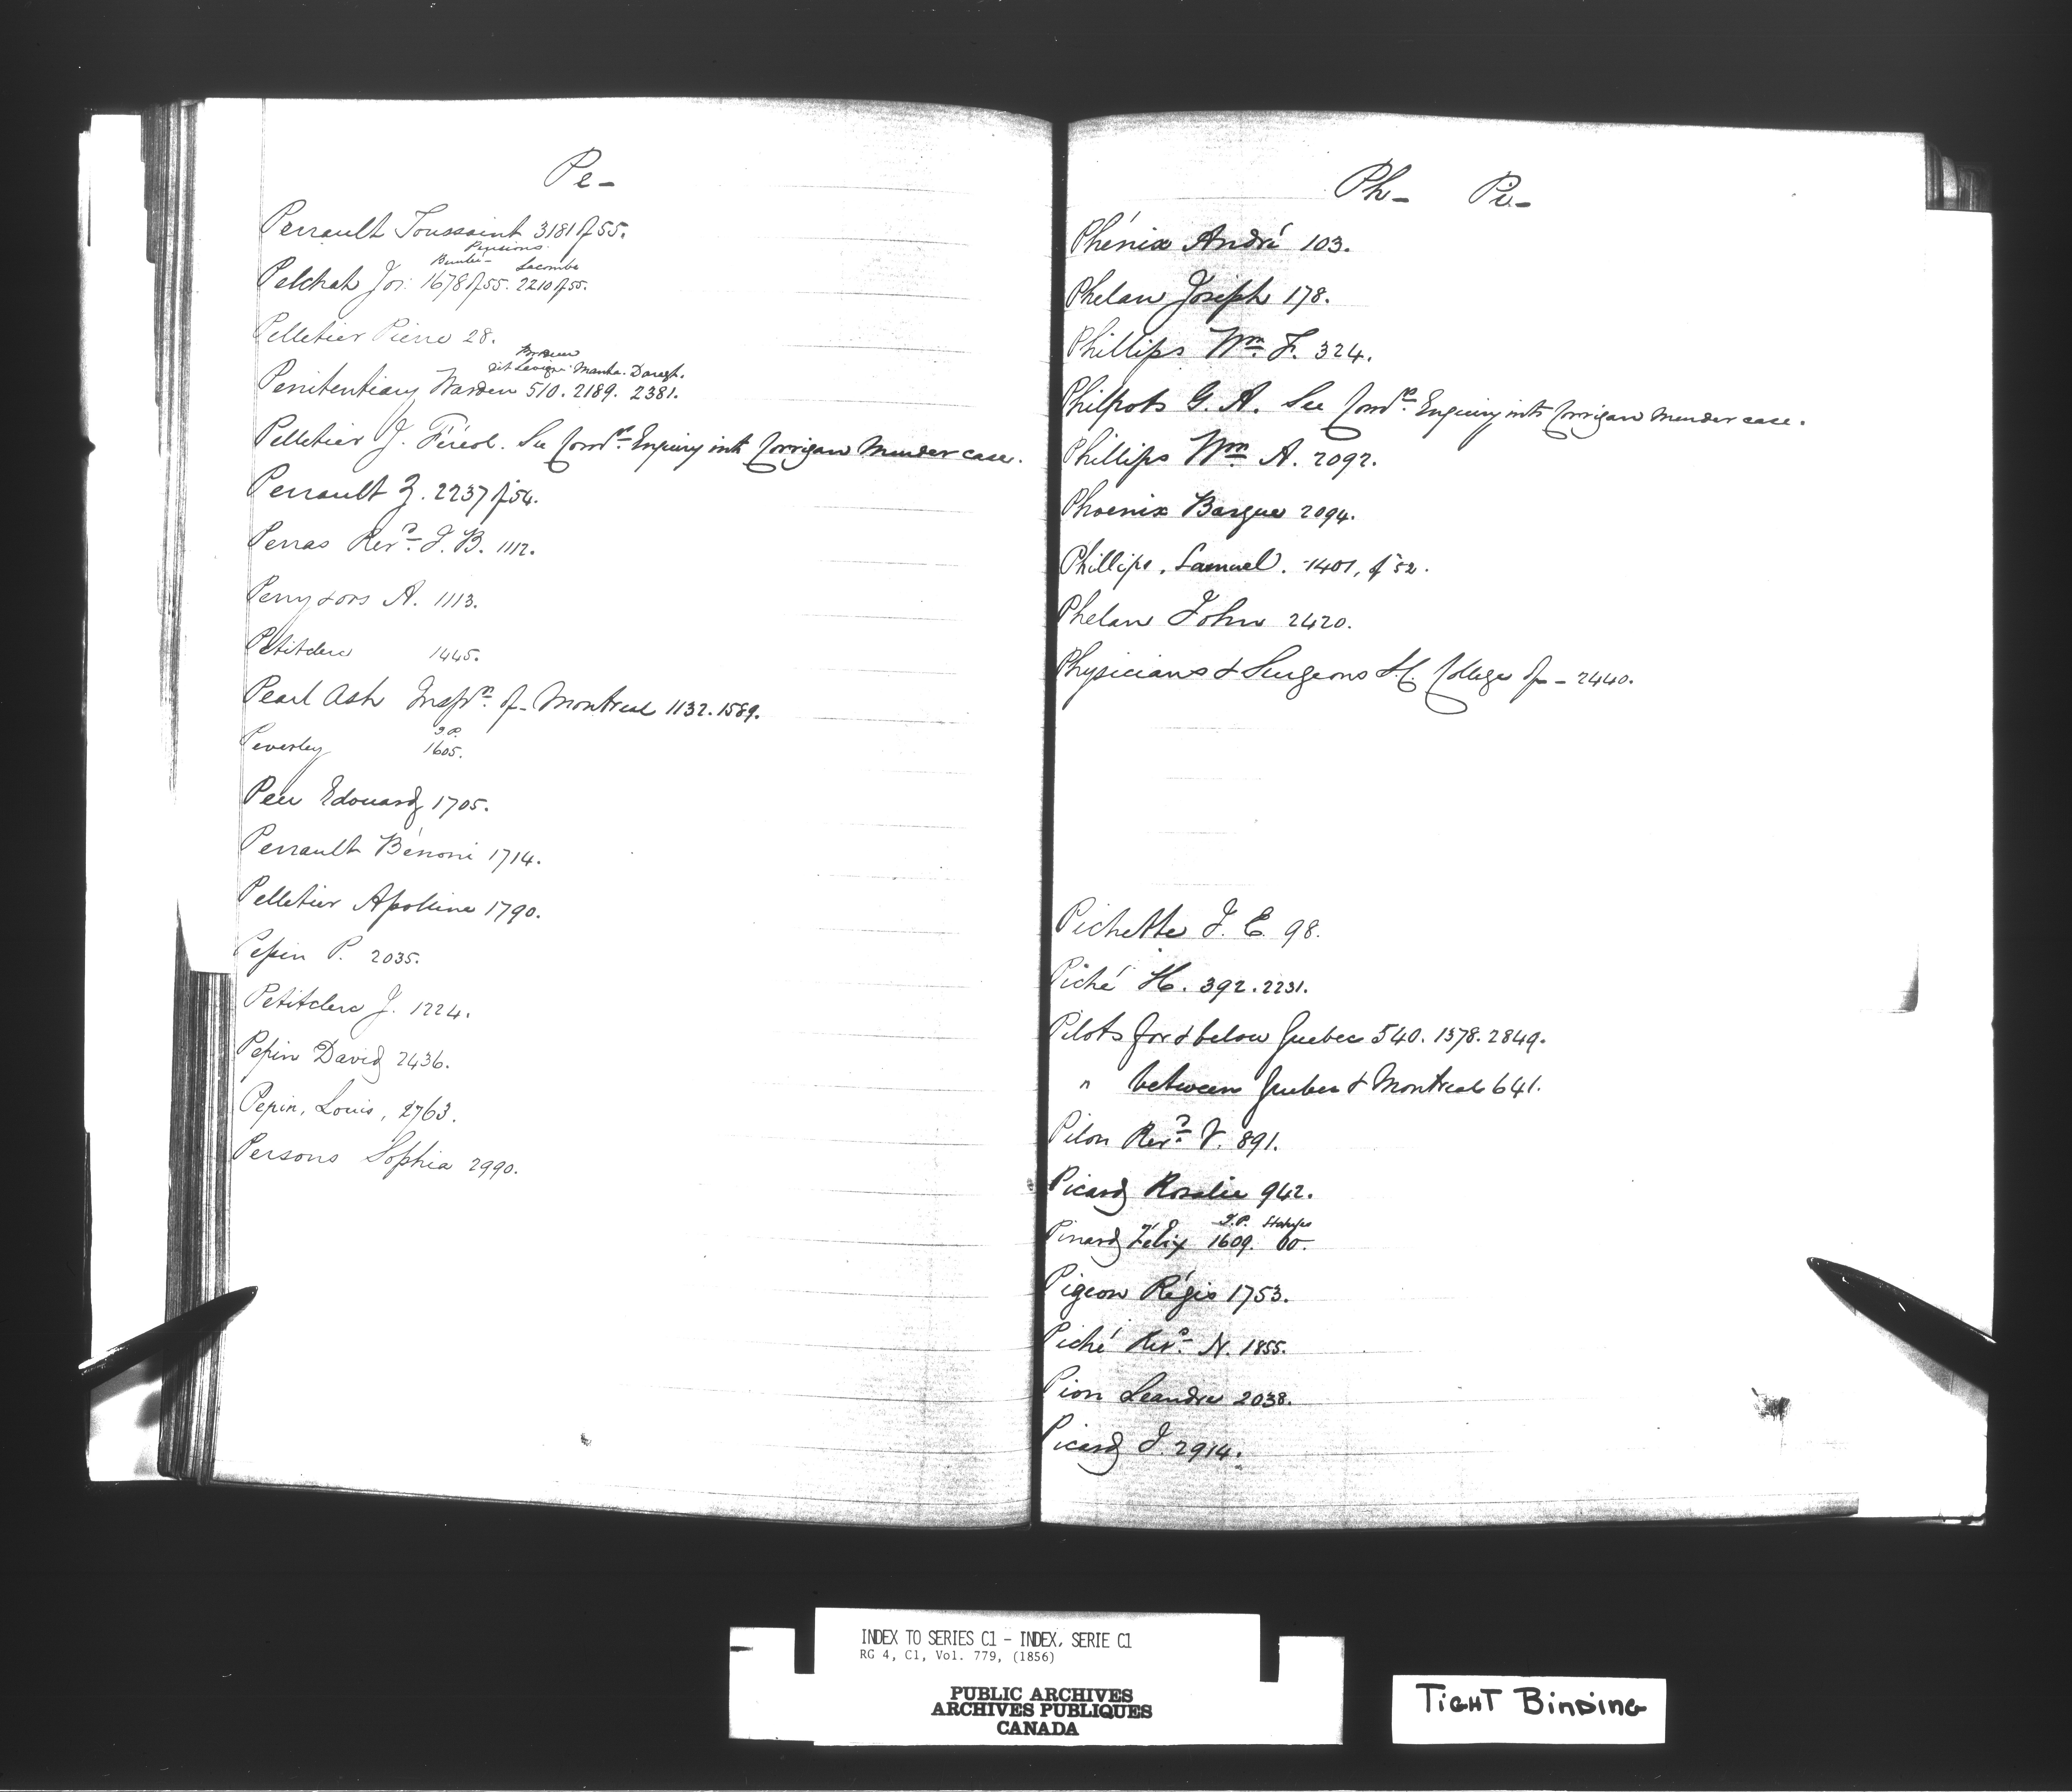 Pe-
Perrault Toussaint 3181 of 55.
Pensions.
Lacombe
Pelchat Jos: 1678 of 55. 2210 of 55.
Pelletier Pierre 28.
dit Lavigne. Manha. Daragh.
Penitentiary Warden 510. 2189. 2381.
Pelletier J. Féréol. See Comrs. Enquiry into Corrigan Murder case.
Perrault Z. 2237 of 54.
Perras Revd. J. B. 1112.
Perry & ors A. 1113.
Petitclerc 1445.
Pearl Ash Inspr. of - Montreal 1132. 1589.
J.P.
Peverley 1605.
Peu Edouard 1705.
Perrault Bénoni 1714.
Pelletier Apolline 1790.
Pepin P. 2035.
Petitclerc J. 1224.
Pepin David 2436.
Pepin, Louis, 2763.
Persons Sophia 2990.
Ph- Pi-
Phénix André 103.
Phelan Joseph 178.
Phillips Wm. F. 324.
Philpots G. A. See Comrs. Enquiry into Corrigan Murder case.
Phillips Wm. A. 2092.
Phoenix Barque 2094.
Phillips, Samuel. 1401, of 52.
Phelan John 2420.
Physicians & Surgeons L.C. College of - 2440.
Pichette J. E. 98.
Piché H. 392. 2231.
Pilots for & below Quebec 540. 1378. 2849.
" between Quebec & Montreal 641.
Pilon Revd. V. 891.
Picard Rosalie 942.
J.P.
Pinard Félix 1609. Do.
Pigeon Régis 1753.
Piché Revd. N. 1855.
Pion Leandre 2038.
Picard J. 2914.
INDEX TO SERIES C1 - INDEX, SERIE C1
RG 4, C1, Vol. 779, (1856)
PUBLIC ARCHIVES
ARCHIVES PUBLIQUES
CANADA
TIGHT BINDING